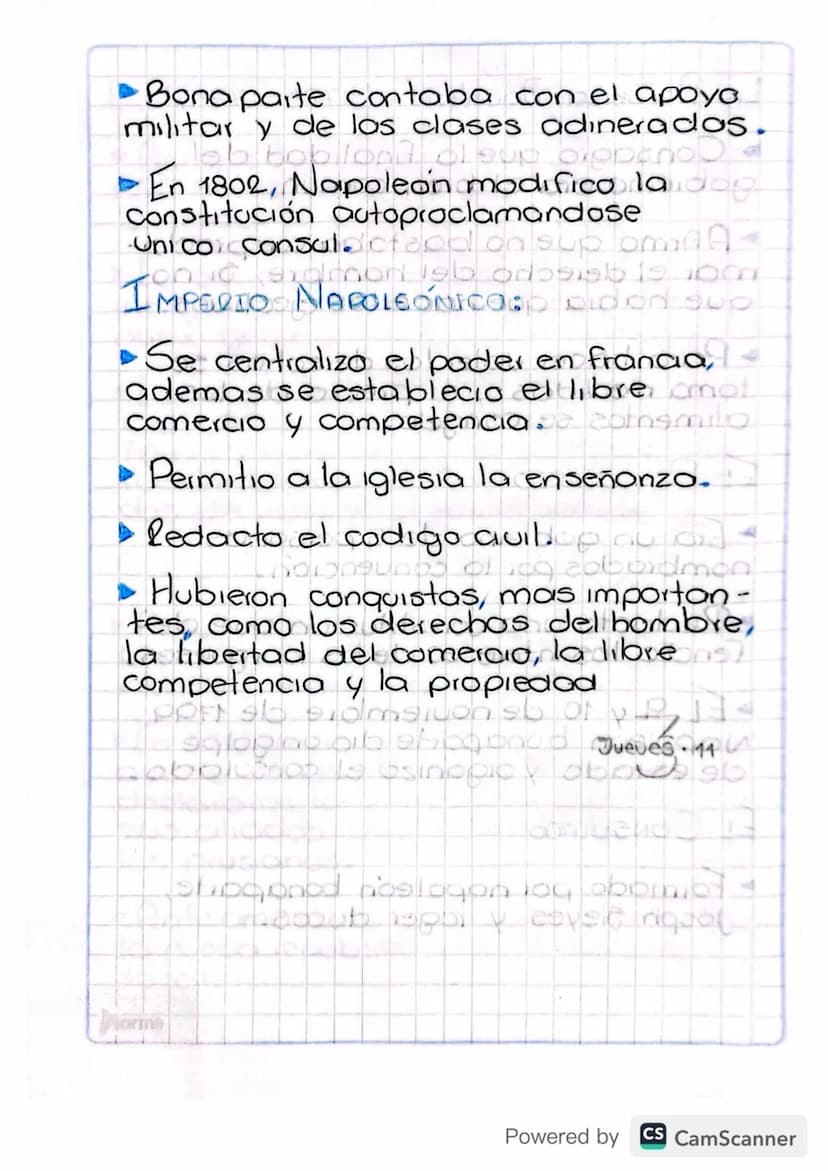 ▶ Bonaparte contaba con el apoyo
militar y de las clases adineradas.
▶ En 1802, Napoleón modifico la
constitución autoproclamandose
unico consul.
IMPERIO NAPOLEÓNICO:
▶ Se centralizo el poder en francia,
ademas se establecio el libre
comercio y competencia.
▶ Permitio a la iglesia la enseñanza.
▶ Redacto el codigo civil.
▶ Hubieron conquistas, mas importan-
tes, como los derechos del hombre,
la libertad del comercio, la libre
competencia y la propiedad
Jueves. 11
norma
Powered by CS CamScanner